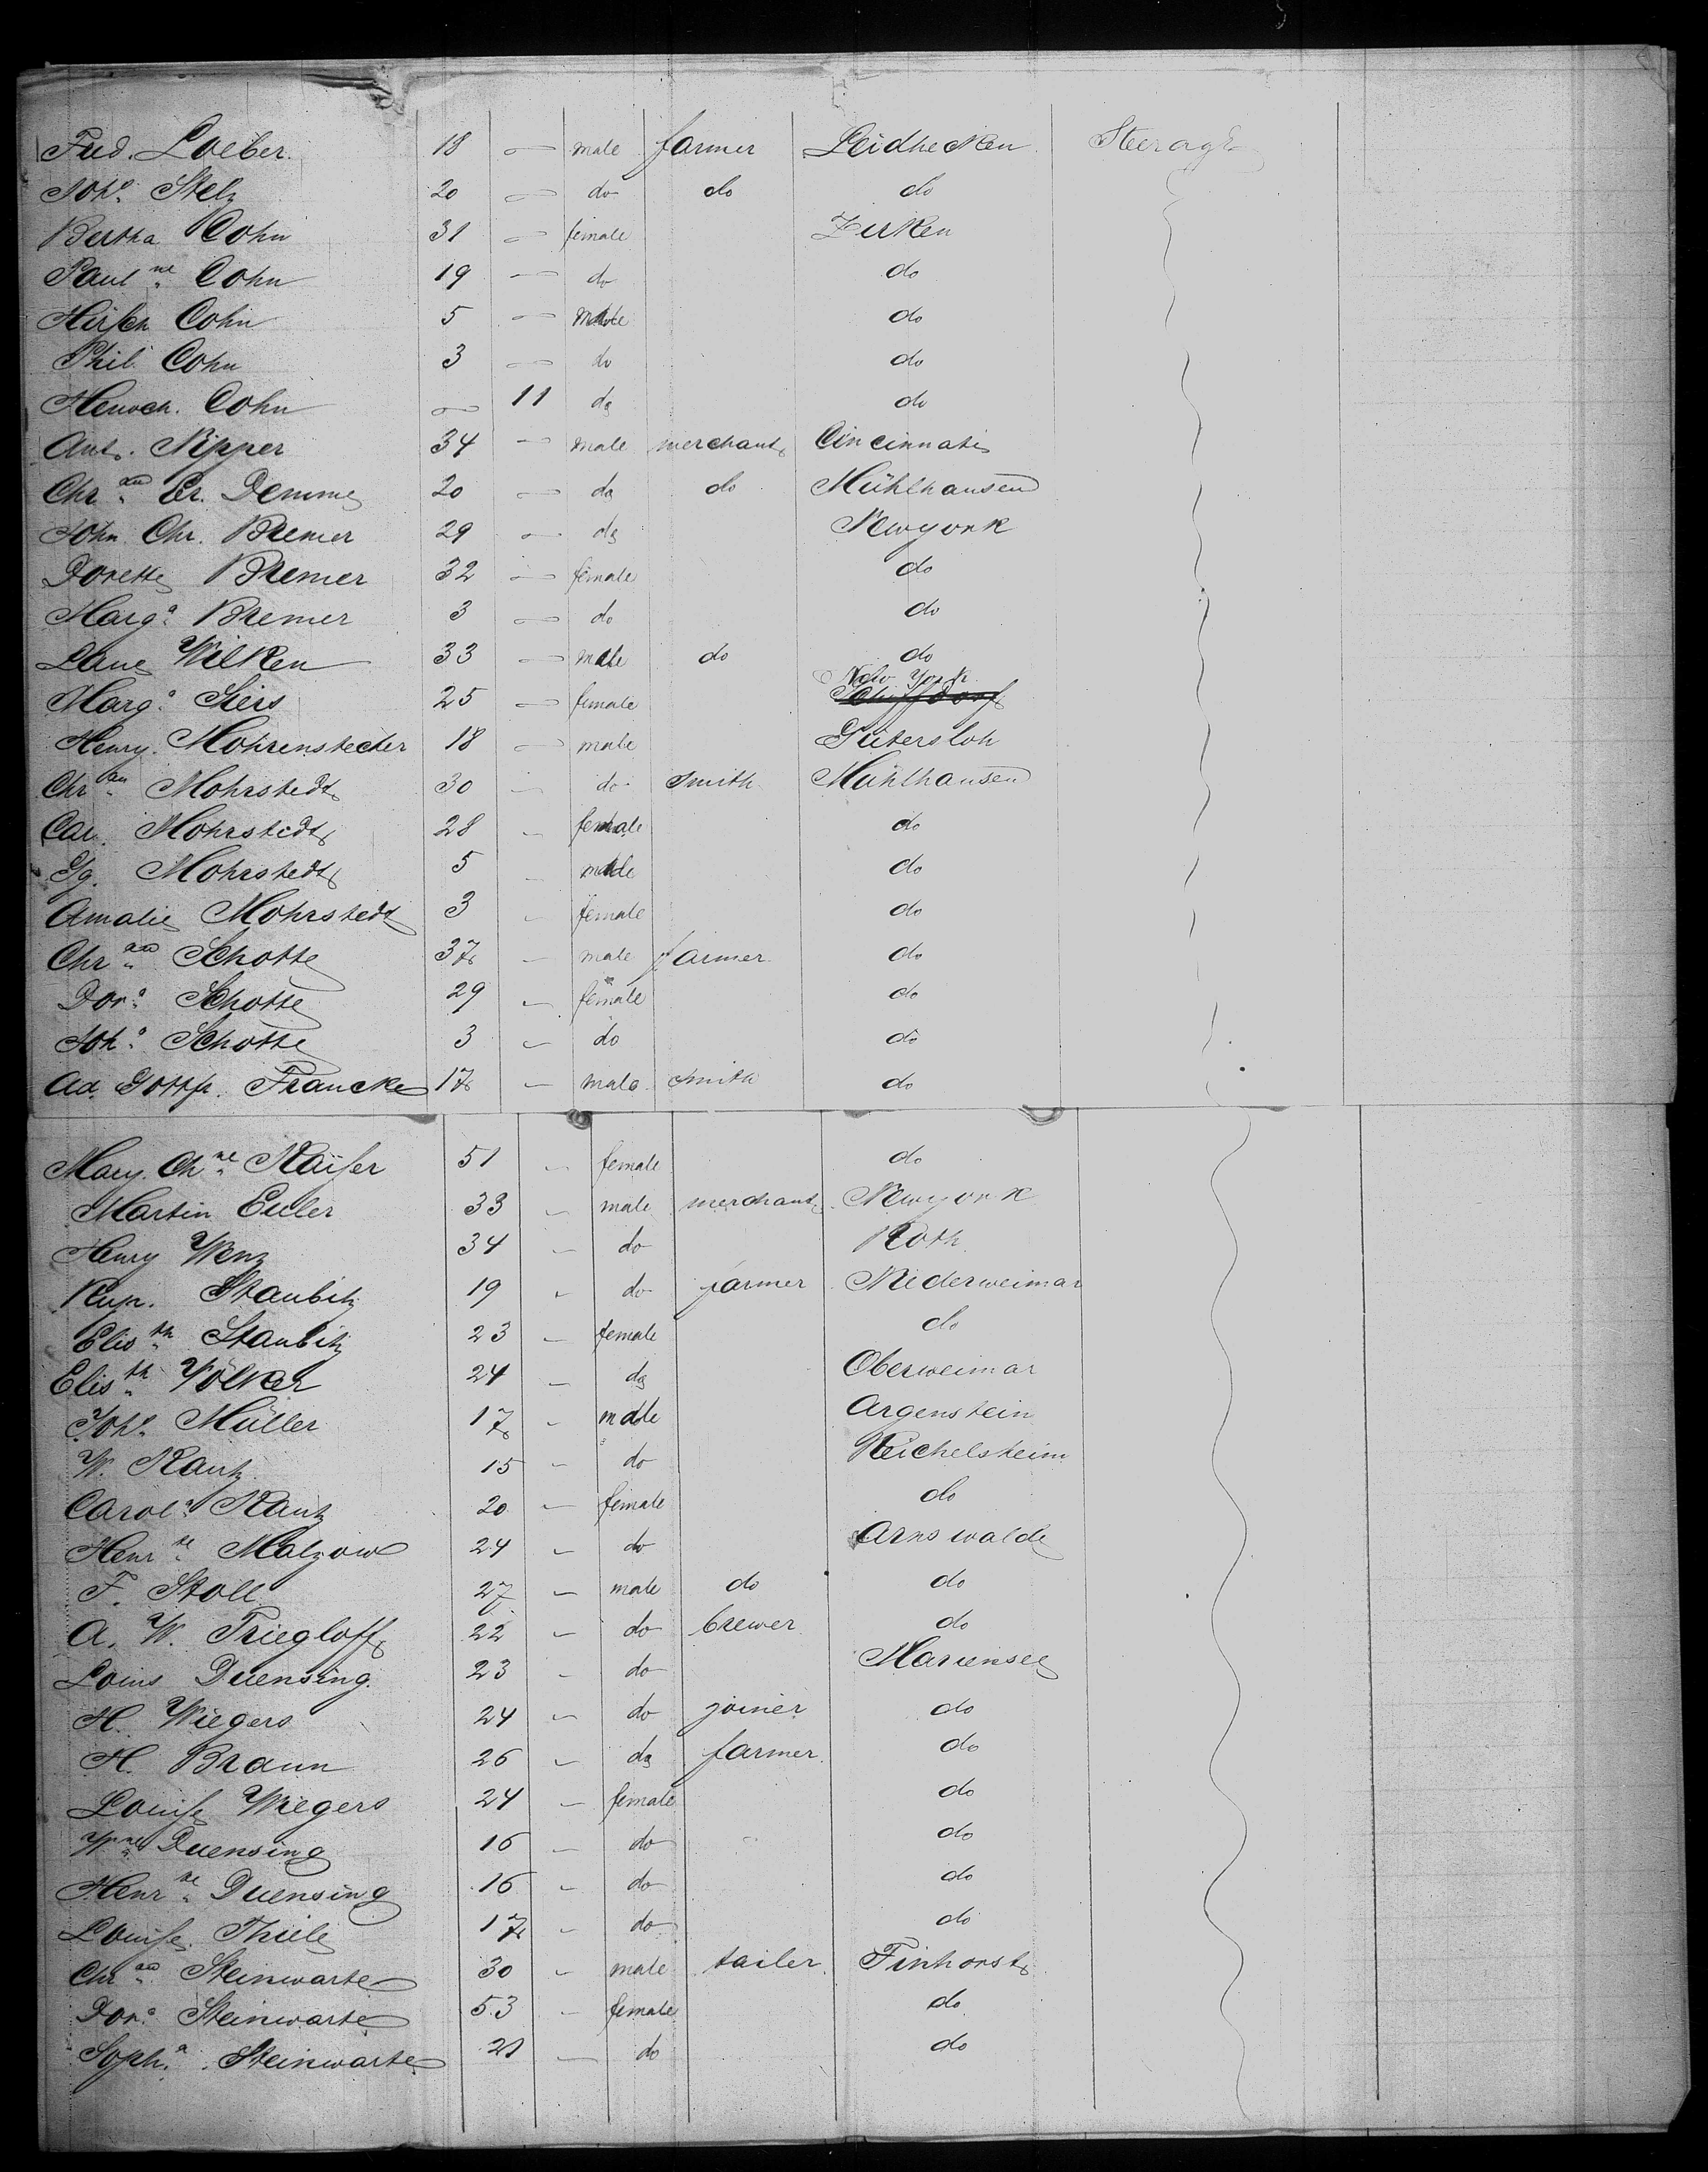 Fred. Loeber. 18 — male farmer Leidhecken Steerage
Joh.ˢ Stelz 20 — do do do
Bertha Cohn 31 — female Zirken
Paul.ⁿᵉ Cohn 19 — do do
Hirsch Cohn 5 — male do
Phil. Cohn 3 — do do
Henoch. Cohn — 11 do do
Ant. Nipper 34 — male merchant Cincinnati
Chr.ᵃⁿ Er. Demme 20 — do do Mühlhausen
John Chr. Bremer 29 — do Newyork
Dorette Bremer 32 — female do
Marg.ᵃ Bremer 3 — do do
Lane Wilken 33 — male do do
Marg.ᵃ Siers 25 — female New York Schiffdorf
Henry. Mohrenstecher 18 — male Gütersloh
Chr.ᵃⁿ Mohrstedt 30 — do smith Mühlhausen
Car. Mohrstedt 28 — female do
Gg. Mohrstedt 5 — male do
Amalie Mohrstedt 3 — female do
Chr.ᵃⁿ Schotte 37 — male farmer do
Dor.ᵃ Schotte 29 — female do
Joh.ᵃ Schotte 3 — do do
Ad. Gottfr. Francke 17 — male smith do
Mary. Ch.ⁿᵉ Kaiser 51 — female do
Martin Euler 33 — male merchant Newyork
Henry Wenz 34 — do Roth
Rup. Staubitz 19 — do farmer Niederweimar
Elis.ᵗʰ Staubitz 23 — female do
Elis.ᵗʰ Völker 24 — do Oberweimar
Joh.ˢ Müller 17 — male Argenstein
W. Kautz 15 — do Reichelsheim
Carol.ᵉ Kautz 20 — female do
Henr.ᵗᵉ Malzow 24 — do Arnswalde
F. Stoll 27 — male do do
A. W. Triegloff 22 — do brewer do
Louis Duensing. 23 — do Mariensee
H. Wiegers 24 — do joiner do
H. Braun 26 — do farmer do
Louise Wiegers 24 — female do
W.ⁿᵉ Duensing 16 — do do
Henr.ᵗᵉ Duensing 16 — do do
Louise Thiele 17 — do do
Chr.ᵃⁿ Steinwarte 30 — male tailer Finhorst
Dor.ᵃ Steinwarte 53 — female do
Soph.ᵃ Steinwarte 21 — do do